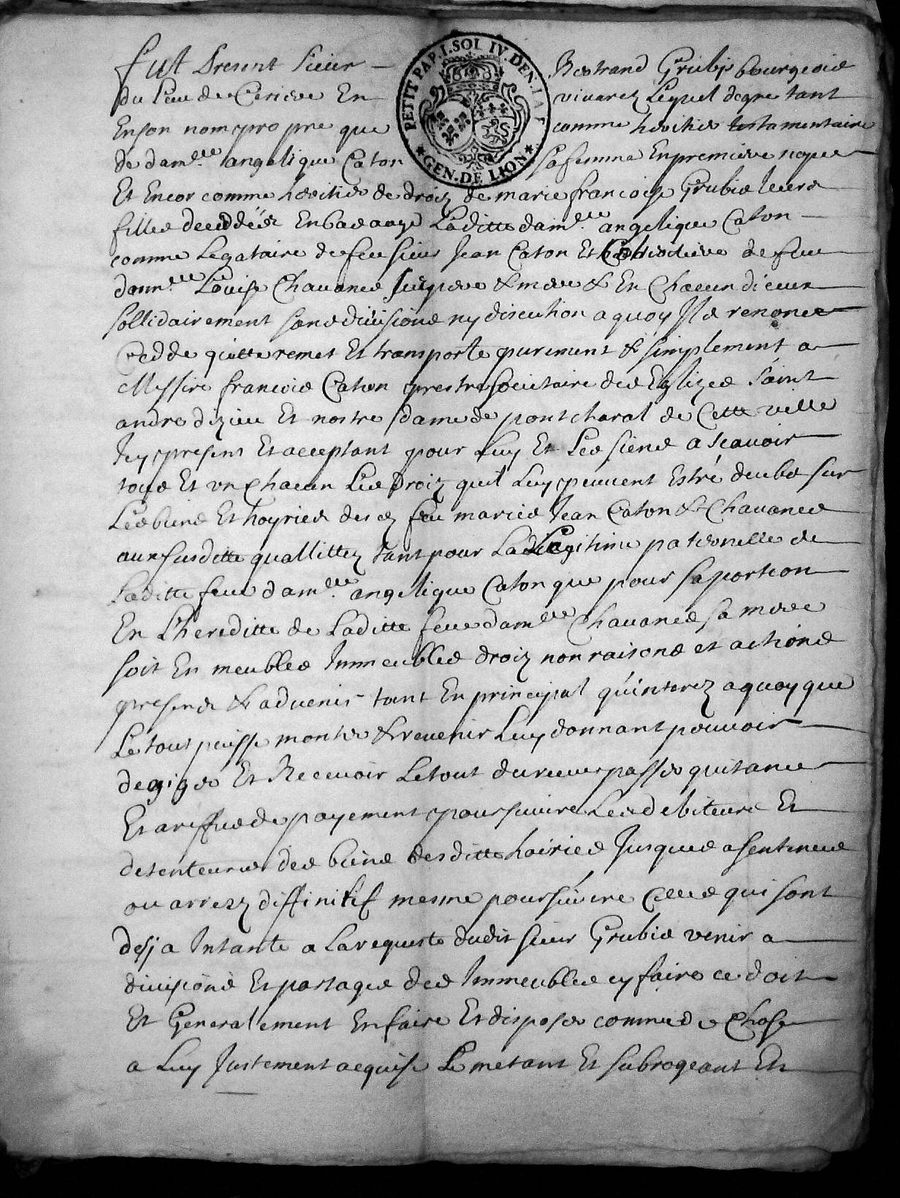 PETIT PAP. I. SOL IV. DEN. LA F.
GEN. DE LION
fust Present sieur Bertrand Grubis bourgeois
du lieu de En vivarez Lequel de gre tant
En son nom propre que comme heritier testamentaire
de dam.lle angelique Caton sa femme En premiere nopce
Et Encor comme heritier de droiz de marie francoise Grubis leurs
filles decedées En bas aage Laditte dam.lle angelique Caton
comme Legataire de feu sieur Jean Caton Et heritiere de feue
dam.lle Louise Chavance ses pere & mere & En chacun dieux
sollidairement sans divisions ny discution a quoy Il a renoncé
Cedde quitte remet Et transporte purement & simplement a
Messire francois Caton prestre socitaire des Eglizes Saint
andre dizieu Et nostre dame de pontcharal de Cette ville
Icy present Et acceptant pour Luy Et Les siens a scavoir
tous Et un chacun Les droiz quil Luy peuvent Estre deubs sur
Les biens Et hoyries des feu maries Jean Caton & Chavance
aux susditte quallittez tant pour La Legitime paternelle de
Laditte feue dam.lle angelique Caton que pour sa portion
En L'hereditte de Laditte feue dam.lle Chavance sa mere
soit En meubles Immeubles droiz noms raisons et actions
presens & advenir tant En principal qu'interez a quoy que
Le tout puisse monter & revenir Luy donnant pouvoir
degiger Et Recevoir Le tout du receu passer quitance
Et a reffus de payement poursuivre Les debiteurs Et
detenteurs des biens desditte hoiries Jusques a sentence
ou arrez diffinitif mesme poursuivre Celles qui sont
desja Intante a La requeste dudit sieur Grubis venir a
divisions Et partage des Immeubles y faire ce doit
Et Generalement En faire Et disposer comme de chose
a Luy Justement acquise Le metant Et subrogeant En